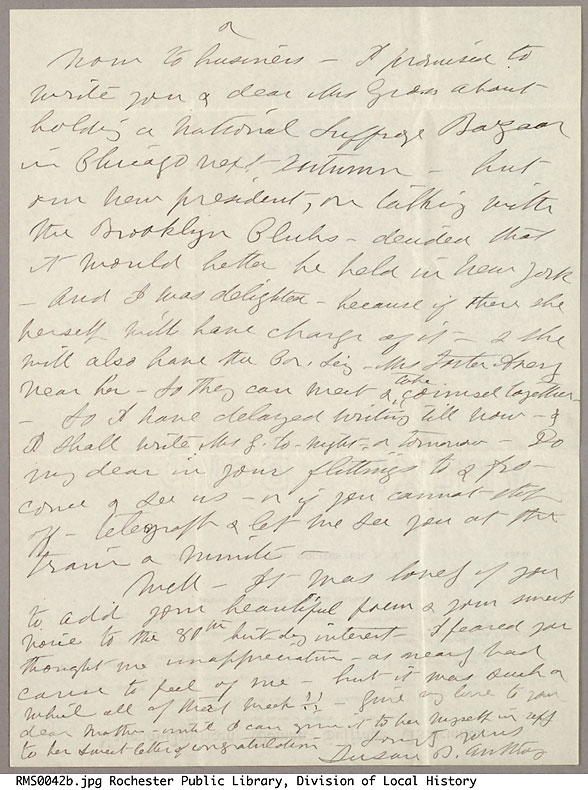 2
Now to business - I promised to
write you & dear Mrs Gross about
holding a National Suffrage Bazaar
in Chicago next Autumn - but
our new president, on talking with
the Brooklyn Clubs - decided that
it would better be held in New York
- And I was delighted - because if there she
herself will have charge of it - & she
will also have the Cor. Sec. - Mrs Foster Avery
near her - so they can meet & take counsel together -
- So I have delayed writing till now - &
I shall write Mrs G. to-night or tomorrow - Do
my dear in your flittings to & fro -
come & see us - or if you cannot stop
off - telegraph & let me see you at the
train a minute -
Well - It was lovely of you
to add your beautiful poem & your sweet
voice to the 80th birthday interest - I feared you
thought me unappreciative - as nearly had
cause to feel of me - but it was such a
whirl all of that week!! - give my love to your
dear mother - until I can myself in
to her sweet letter of congratulation -
Lovingly yours
Susan B. Anthony
RMS0042b.jpg Rochester Public Library, Division of Local History